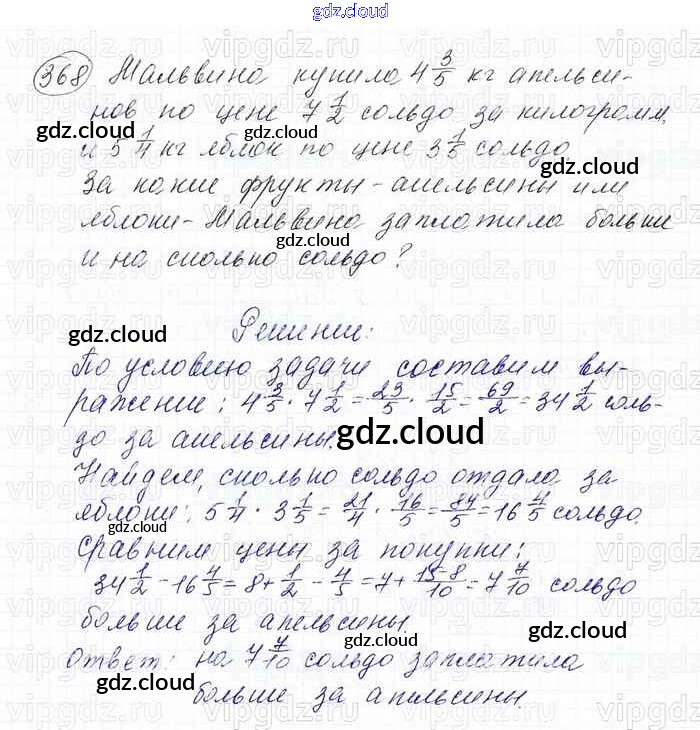 gdz.cloud
368 Мальвина купила 4 3/5 кг апельси-
нов по цене 7 1/2 сольдо за килограмм,
и 5 1/4 кг яблок по цене 3 1/5 сольдо.
За какие фрукты - апельсины или
яблоки - Мальвина заплатила больше
и на сколько сольдо?
Решение:
По условию задачи составим вы-
ражение: 4 3/5 · 7 1/2 = 23/5 · 15/2 = 69/2 = 34 1/2 соль-
до за апельсины.
Найдем, сколько сольдо отдала за
яблоки: 5 1/4 · 3 1/5 = 21/4 · 16/5 = 84/5 = 16 4/5 сольдо.
Сравним цены за покупки:
34 1/2 - 16 4/5 = 8 + 1/2 - 4/5 = 7 + 15-8/10 = 7 7/10 сольдо
больше за апельсины.
Ответ: на 7 7/10 сольдо заплатила
больше за апельсины.